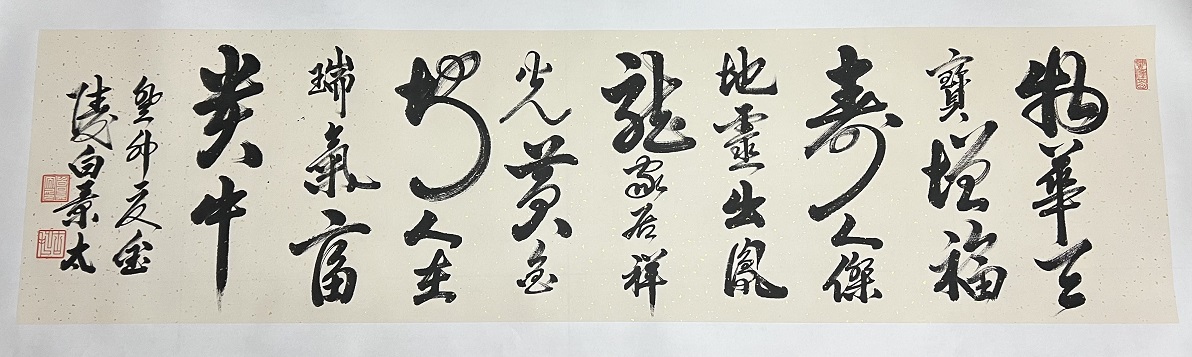 物華天
寶增福
壽人傑
地靈出鳳
龍家居祥
光黃金
地人在
瑞氣富
貴中
癸卯夏金
陵白景太